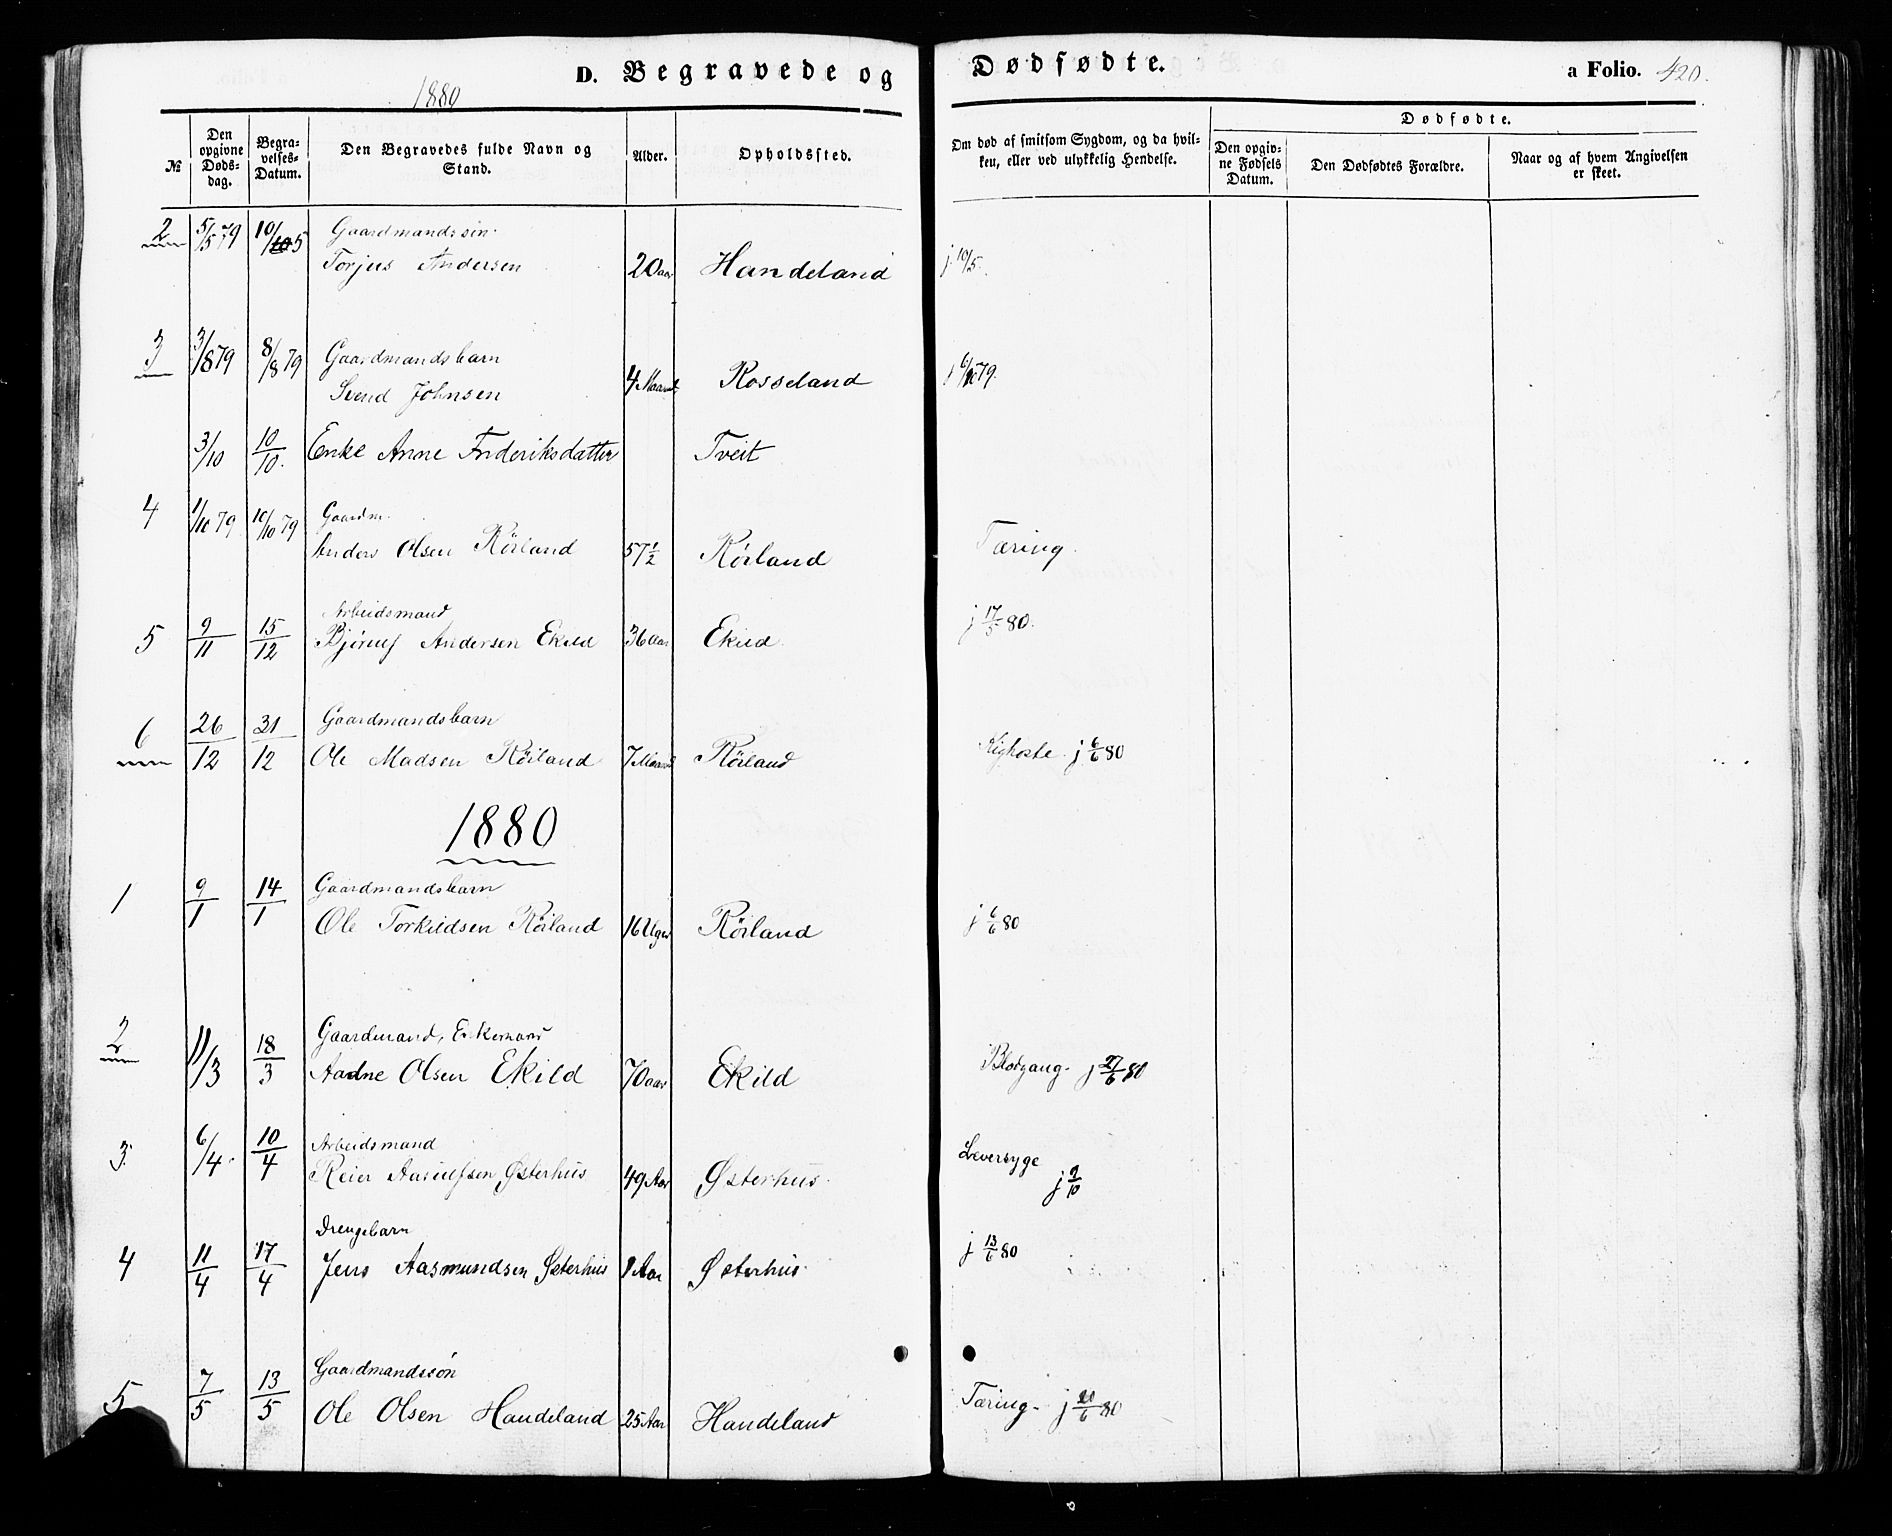 D. Begravede og Dødfødte.
a Folio. 420.
1880
№
Den opgivne Døds-dag.
Begra-velses-Datum.
Den Begravedes fulde Navn og Stand.
Alder.
Opholdssted.
Om død af smitsom Sygdom, og da hvil-ken, eller ved ulykkelig Hendelse.
Dødfødte.
Den opgiv-ne Fødsels Datum.
Den Dødfødtes Forældre.
Naar og af hvem Angivelsen er skeet.
2 5/5 79 10/5 Gaardmandssøn.
Torjus Andersen 20 aar Handeland j. 10/5.
3 3/8 79 8/8 79 Gaardmandsbarn
Svend Johnsen 4 Maaned Rosseland
3/10 10/10. Enke Anne Frederiksdatter Tveit
4 1/10 79 10/10 79 Gaardm.
Anders Olsen Röiland 57 1/2 Röiland Tæring.
5 9/11 15/12 Arbeidsmand
Andersen Ekild 36 aar Ekild. j 17/5 80.
6 26/12 31/12 Gaardmandsbarn
Ole Madsen Röiland 7 Maaned Röiland Kighoste j 6/6 80
1880
1 9/1 14/1 Gaardmandsbarn
Ole Torkildsen Röiland 16 Uger Röiland j 6/6 80
2 11/3 18/3 Gaardmand, Enkemand
Aadne Olsen Ekild 70 aar Ekild Blodgang. j 27/6 80
3. 6/4. 10/4 Arbeidsmand
Reier Aasulfsen Østerhus 49 Aar Østerhus. Leversyge
j 9/10
4 11/4 17/4 Drengebarn
Jens Aasmundsen Østerhus 1 Aar Østerhus. j 13/6 80
5 7/5 13/5 Gaardmandssön
Ole Olsen Handeland 25 Aar Handeland Tæring. j 20/6 80